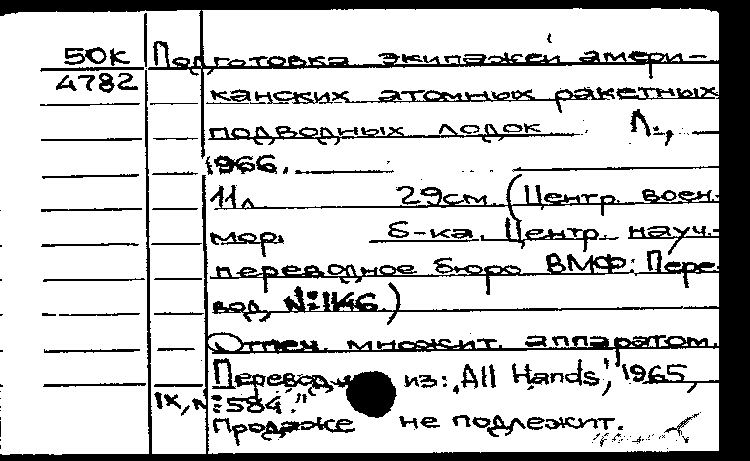 50К Подготовка экипажей амери-
4782 канских атомных ракетных
подводных лодок Л.,
1966.
11л 29см. (Центр. воен.-
мор. б-ка. Центр. науч.-
переводное бюро ВМФ: Пере-
вод, №:1146.)
Отпеч. множит. аппаратом.
Перевод из: „All Hands", 1965,
IX, №:584."
Продаже не подлежит.